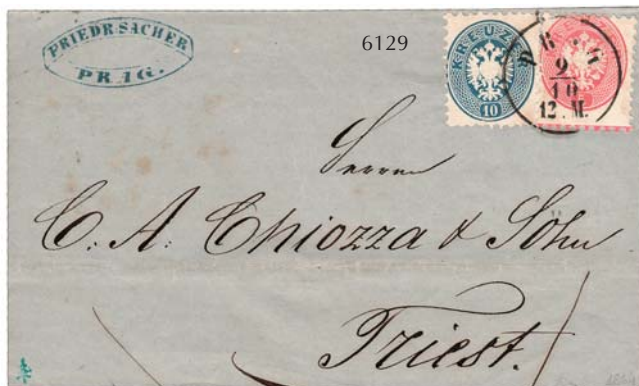 FRIEDR. SACHER
PRAG.
6129
KREUZER
10
PRAG
9
10
12. M.
Herren
C. A. Chiozza & Söhn
Triest.